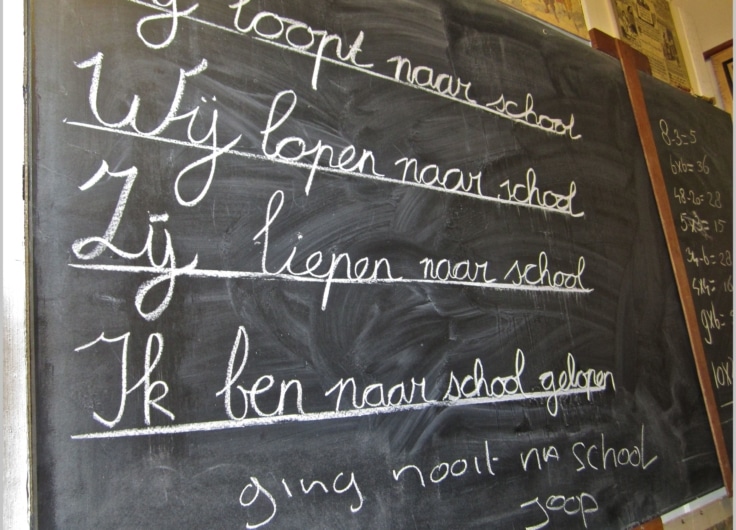 loopt naar school
Wij lopen naar school
Zij liepen naar school
Ik ben naar school gelopen
ging nooit na school
Joop
8-3=5
6x6=36
48-20=28
=15
34-6=28
4x4=16
9x6=
10x